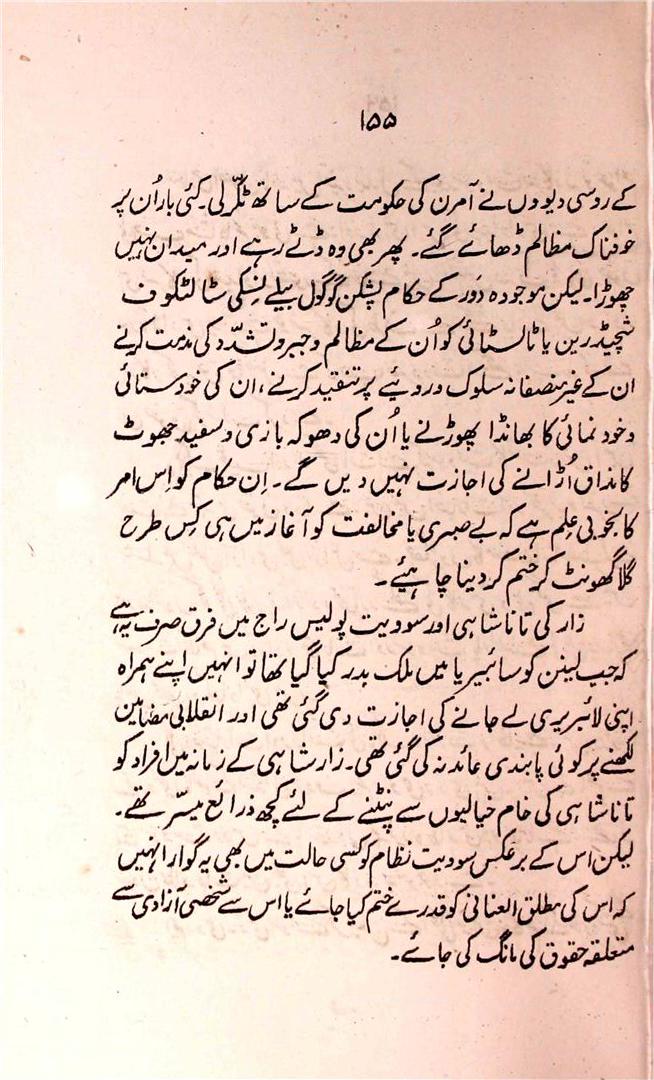 ۱۵۵
کے روسی دیووں نے آمرن کی حکومت کے ساتھ ٹکّر لی۔ کئی بار اُن پر
خوفناک مظالم ڈھائے گئے۔ پھر بھی وہ ڈٹے رہے اور میدان نہیں
چھوڑا۔ لیکن موجودہ دَور کے حکام پشکن گوگول بیلے نسکی سٹالٹکوف
شچیڈرین یا ٹالسٹائی کو اُن کے مظالم و جبر و تشدّد کی مذمت کرنے
ان کے غیر منصفانہ سلوک و رویئے پر تنقید کرنے، ان کی خودستائی
و خود نمائی کا بھانڈا پھوڑنے یا اُن کی دھوکہ بازی و سفید جھوٹ
کا مذاق اُڑانے کی اجازت نہیں دیں گے۔ اِن حکام کو اِس امر
کا بخوبی عِلم ہے کہ بے صبری یا مخالفت کو آغاز میں ہی کِس طرح
گلا گھونٹ کر ختم کر دینا چاہیئے۔
زار کی تاناشاہی اور سوویت پولیس راج میں فرق صرف یہ ہے
کہ جب لینن کو سائبیریا میں ملک بدر کیا گیا تھا تو انہیں اپنے ہمراہ
اپنی لائبریری لے جانے کی اجازت دی گئی تھی اور انقلابی مضامین
لکھنے پر کوئی پابندی عائد نہ کی گئی تھی۔ زار شاہی کے زمانہ میں افراد کو
تاناشاہی کی خام خیالیوں سے نپٹنے کے لئے کچھ ذرائع میسّر تھے۔
لیکن اس کے برعکس سوویت نظام کو کسی حالت میں بھی یہ گوارا نہیں
کہ اس کی مطلق العنانی کو قدرے ختم کیا جائے یا اس سے شخصی آزادی سے
متعلقہ حقوق کی مانگ کی جائے۔